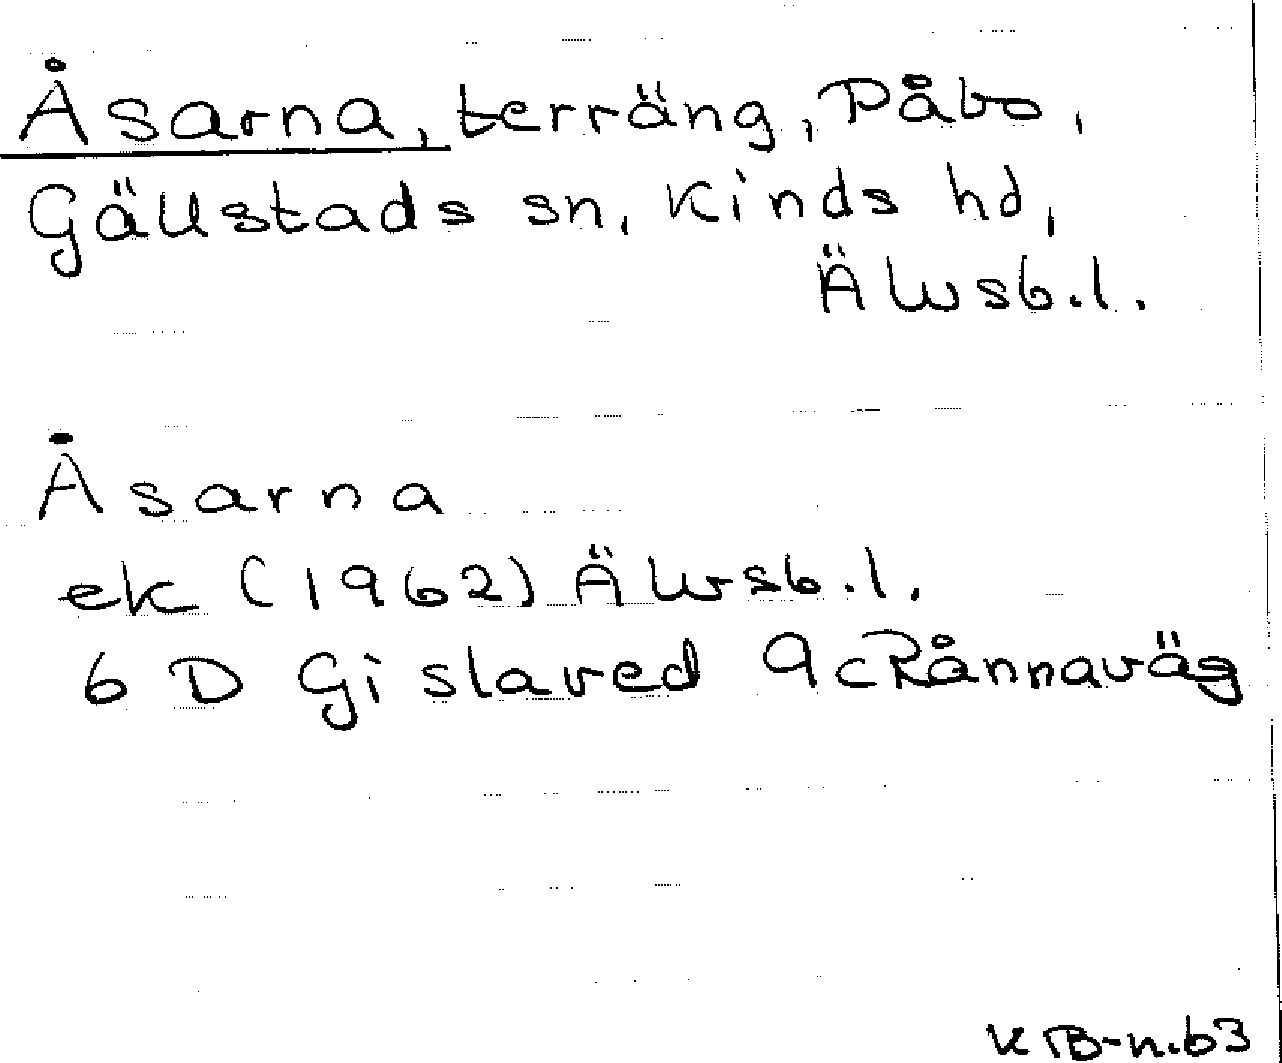 Åsarna, terräng, Påbo,
Gällstads sn, Kinds hd,
Älvsb.l.
Åsarna
ek (1962) Älvsb.l.
6 D Gislaved 9c Rånnaväg
KTB-n.63